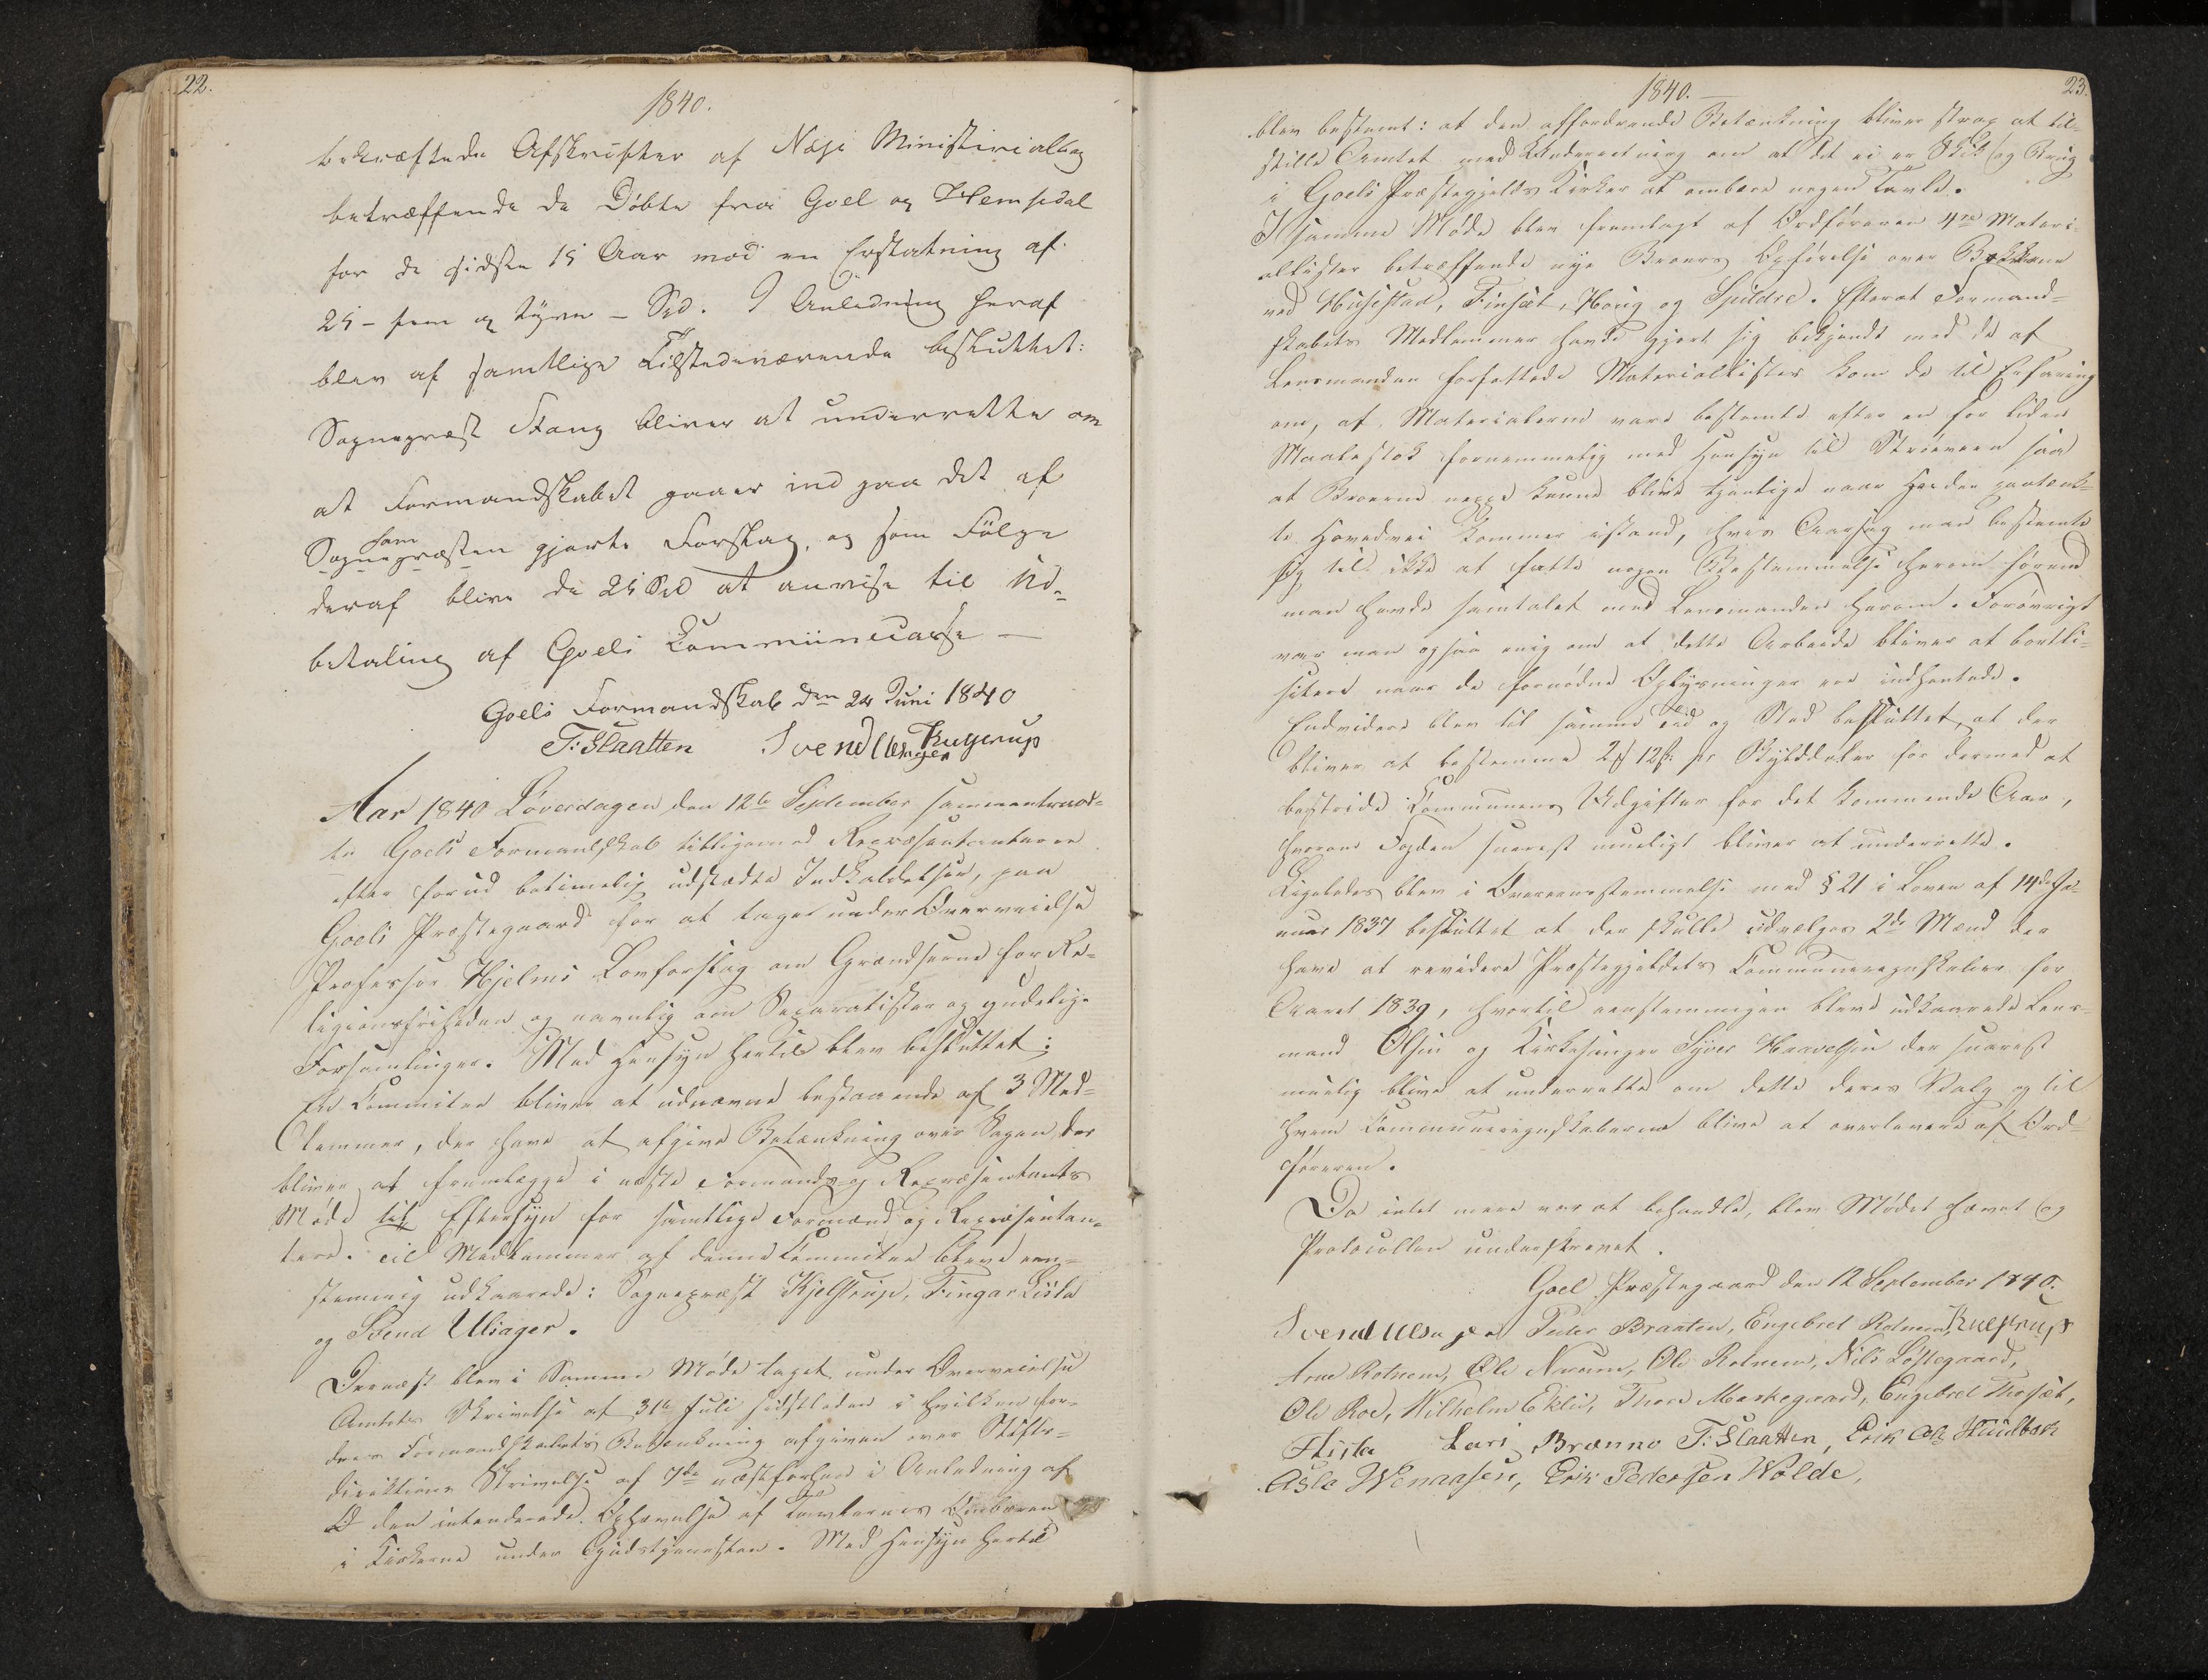 22.
1840.
bekræftede Afskrifter af Næss Ministerialbog
betræffende de Døbte fra Goel og Hemsedal
for de sidste 15 Aar mod en Erstatning af
25 – fem og tyve – Spd. I Anledning heraf
blev af samtlige Tilstedeværende besluttet:
Sognepræst Stang bliver at underrette om
at Formandskabet gaaer ind paa det af
som
Sognepræsten gjorte Forslag, og som Følge
deraf blive de 25 Spd at anvise til Ud-
betaling af Goels Kommünecasse —
Goels Formandskab den 24 Juni 1840
T: Slaatten Svend Ulsager
Aar 1840 Løverdagen den 12te September sammentraad-
te Goels Formandskab tilligemed Repræsentanterne
efter forud betimelig udstædte Indkaldelser, paa
Goels Præstegaard for at tage under Overveielse
Professor Hjelms Lovforslag om Grændserne for Re-
ligionsfriheden og navnlig om Separatister og gudelige
Forsamlinger. Med Hensyn hertil blev besluttet:
En Committee bliver at udnævne bestaaende af 3 Med-
lemmer, der have at afgive Betænkning over Sagen, der
bliver at fremlægge i næste Formands- og Repræsentants
Møde til Eftersyn for samtlige Formænd og Repræsentan-
tere. Til Medlemmer af denne Committee bleve een-
stemmig udkaarede: Sognepræst Kjelstrup, Fingar
og Svend Ulsager.
Dernæst blev i Samme Møde taget under Overveielse
Amtets Skrivelse af 31te Juli sidstleden i hvilken for-
dres Formandskabets Betænkning afgiven over Stifts-
direktionens Skrivelse af 7de næstforhen i Anledning af
den intenderede Ophævelse af Tavlernes Ombæren
i Kirkerne under Gudstjenesten. Med Hensyn hertil
23.
1840. —
blev bestemt: at den affordrende Betænkning bliver strax at til-
stille Amtet med Underretning om at det ei er Skik og Brug
i Goels Præstegjelds Kirker at ombære nogen Tavle.
I samme Møde blev fremlagt af Ordføreren 4re Materi-
allister betræffende nye Broers Opførelse over Bækkene
ved Husestad, Finsæt, Houg og Spildre. Efterat Formand-
skabets Medlemmer havde gjort sig bekjendt med de af
Lensmanden forfattede Materiallister kom de til Erfaring
om, at Materialerne vare bestemte efter en for liden
Maalestok fornemmelig med Hensyn til saa
at Broerne neppe kunne blive tjenlige naar den paatænk-
te Hovedvei kommer istand, hvis Aarsag man bestemte
sig til ikke at fatte nogen Bestemmelse herom førend
man havde samtalet med Lensmanden herom. Forøvrigt
var man ogsaa enig om at dette Arbeide bliver at bortli-
sitere naar de fornødne Oplysninger ere indhentede.
Endvidere blev til samme Tid og Sted besluttet, at der
bliver at bestemme 2 12 ß pr Skylddaler for dermed at
bestride Communens Udgifter for det kommende Aar,
hvorom Fogden snarest mueligt bliver at underrette.
Ligeledes blev i Overeensstemmelse med § 21 i Loven af 14de Ja-
nuar 1837 besluttet at der skulle udvælges 2de Mænd der
have at revidere Præstegjeldets Communeregnskaber for
Aaret 1839, hvortil eenstemmigen bleve udkaarede Lens-
mand Olsen og Kirkesanger Syver Haavelsen der snarest
muelig blive at underrette om dette deres Valg og til
hvem Communeregnskaberne blive at overlevere af Ord-
føreren.
Da intet mere var at behandle, blev Mødet hævet og
Protocollen underskrevet.
Goel Præstegaard den 12 September 1840.
Svend Ulsager Peder Braaten, Engebret Rotneim,
Arne Rotneim, Ole Nruum, Ole Rotneim, Nils Løstegaard,
Ole Roe, Wilhelm Eklie, Thore Markegaard, Engebret Thorsæt,
Lars Brænno T: Slaatten, Erik Ols:
Asle, Erik Pedersen Wolde,